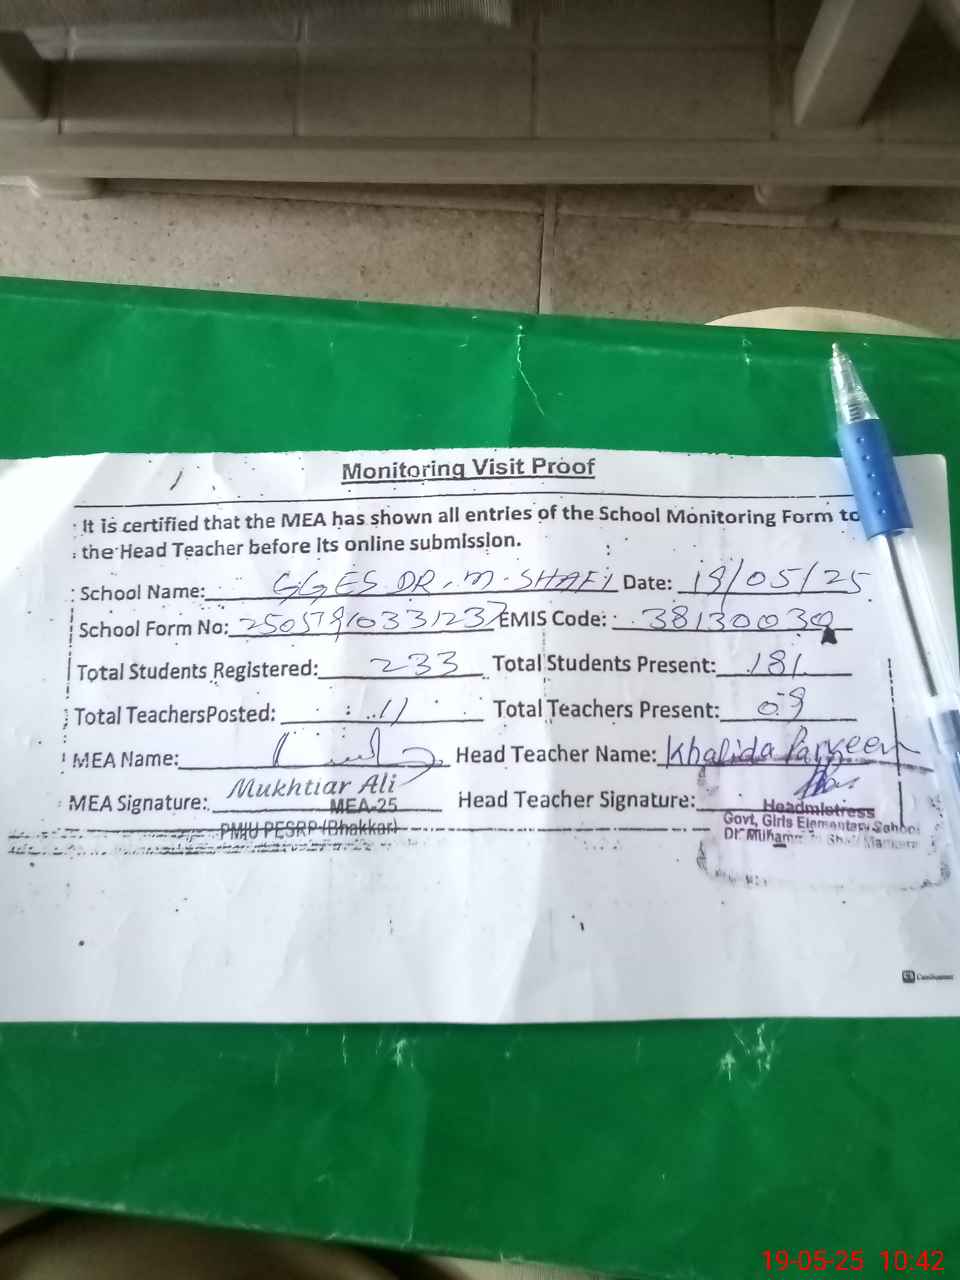 Monitoring Visit Proof
It is certified that the MEA has shown all entries of the School Monitoring Form to
the Head Teacher before its online submission.
School Name: GGES DR. M. SHAFI Date: 19/05/25
School Form No: EMIS Code: 38130030
Total Students Registered: 233 Total Students Present: 181
Total TeachersPosted: 11 Total Teachers Present: 09
MEA Name: Head Teacher Name: Khalida Parveen
Mukhtiar Ali
MEA Signature: MEA-25 Head Teacher Signature:
PMIU PESRP (Bhakkar)
Headmistress
Govt, Girls Elementary School
Dr. Muhammad Shafi
CS CamScanner
19-05-25 10:42